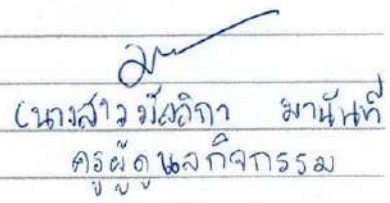 (นางสาวมัลลิกา มานันที
ครูผู้ดูแลกิจกรรม